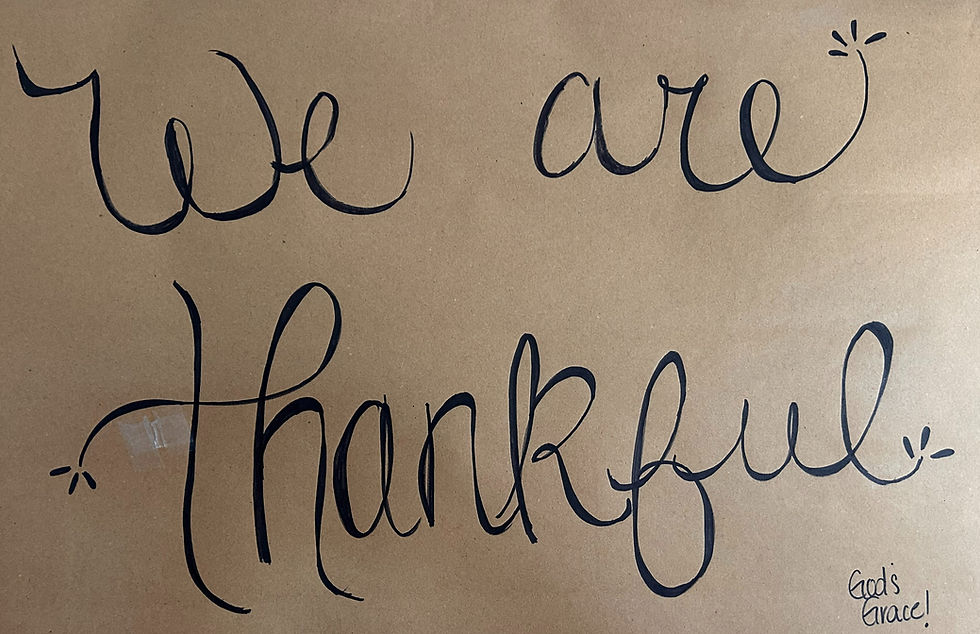 We are
thankful
God's
Grace!